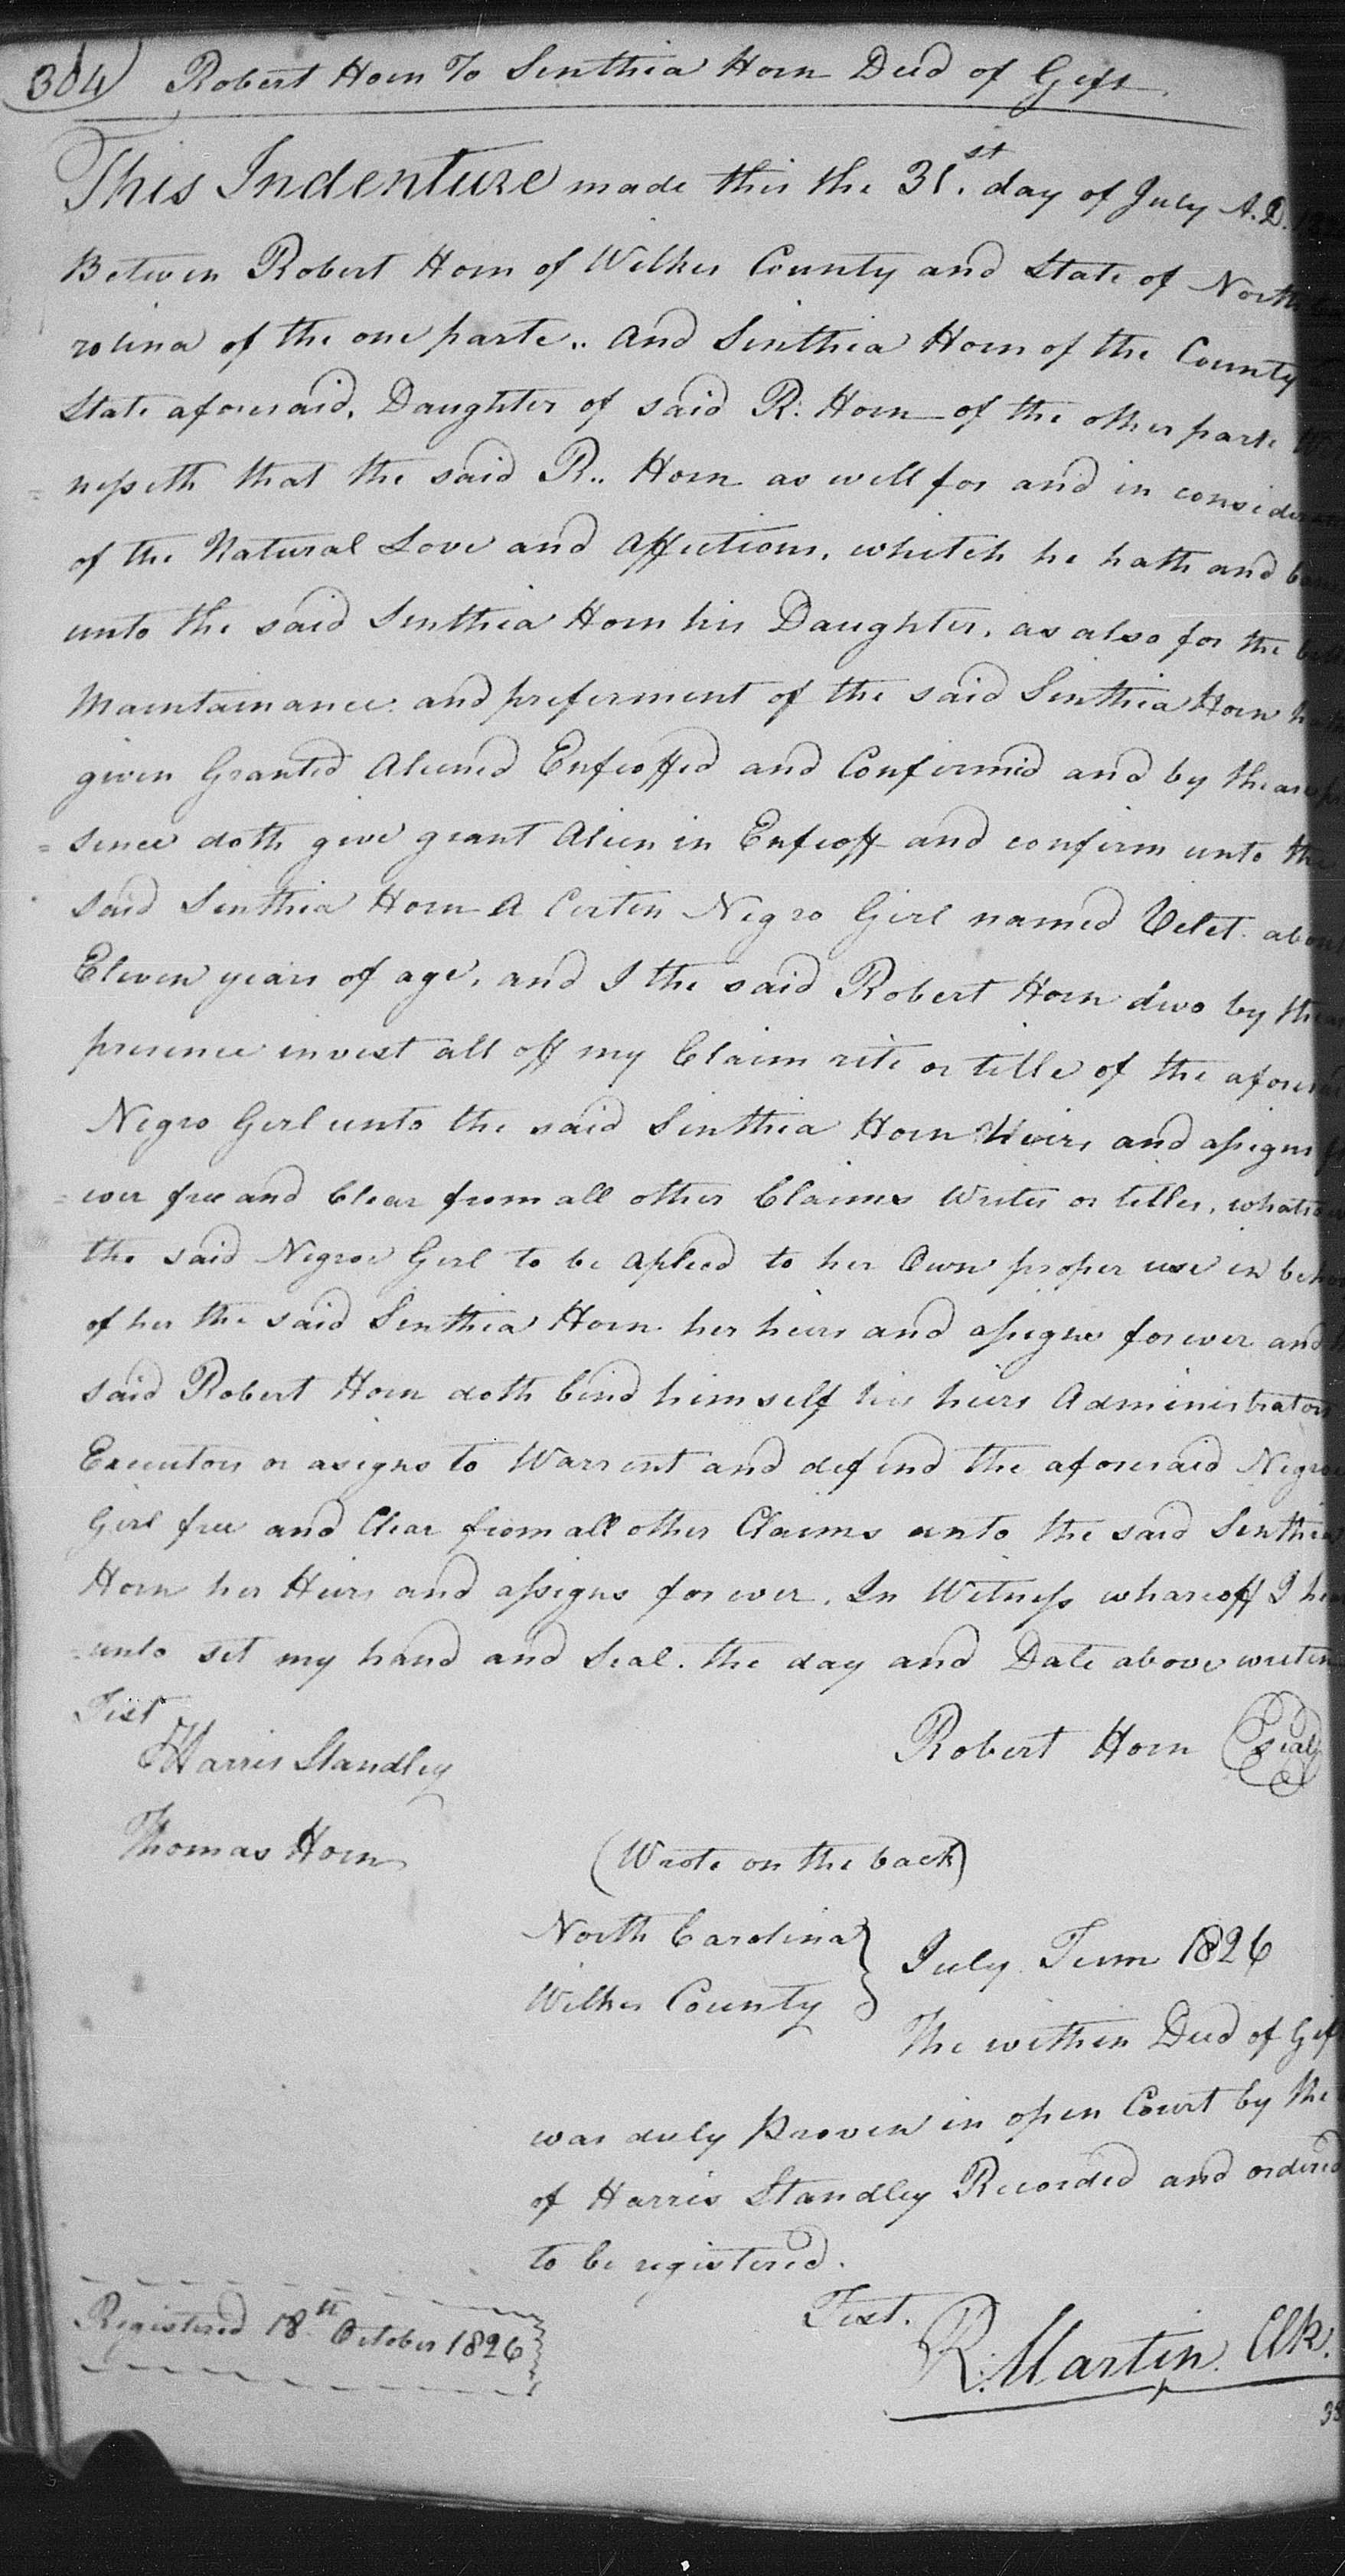 304 Robert Horn To Sinthia Horn Deed of Gift
This Indenture made this the 31.st day of July A.D.
Betwen Robert Horn of Wilkes County and State of North
rolina of the one parte.. And Sinthia Horn of the County
State aforesaid, Daughter of said R. Horn of the other parte
nesseth that the said R.. Horn as well for and in
of the Natural Love and Affections, whitch he hath and
unto the said Sinthia Horn his Daughter, as also for the
Maintainance and preferment of the said Sinthia Horn
given Granted Aliened Enfeoffed and Confirmed and by
= sence doth give grant Alien in Enfeoff and confirm unto the
Said Sinthia Horn A Certen Negro Girl named Velet about
Eleven years of age, and I the said Robert Horn dwo by
presence invest all off my Claim rite or title of the
Negro Girl unto the said Sinthia Horn Heirs and assigns
= ever free and Clear from all other Claims Writes or titles,
the said Negroe Girl to be aplied to her Own proper use in
of her the said Sinthia Horn her heirs and assigns forever and
said Robert Horn doth bind himself his heirs Administrators
Executors or asigns to Warrent and defend the aforesaid Negroe
Girl free and Clear from all other Claims unto the said Sinthia
Horn her Heirs and assigns forever. In Witness whareoff I
= unto set my hand and Seal. the day and Date above writen
Test
Harris Standley
Robert Horn (Seal)
Thomas Horn
(Wrote on the back)
North Carolina }
Wilkes County } July Term 1826
The within Deed of Gift
was duly Proven in open Court by the
of Harris Standley Recorded and ordered
to be registered.
Test.
R. Martin. Clk.
Registered 18th October 1826